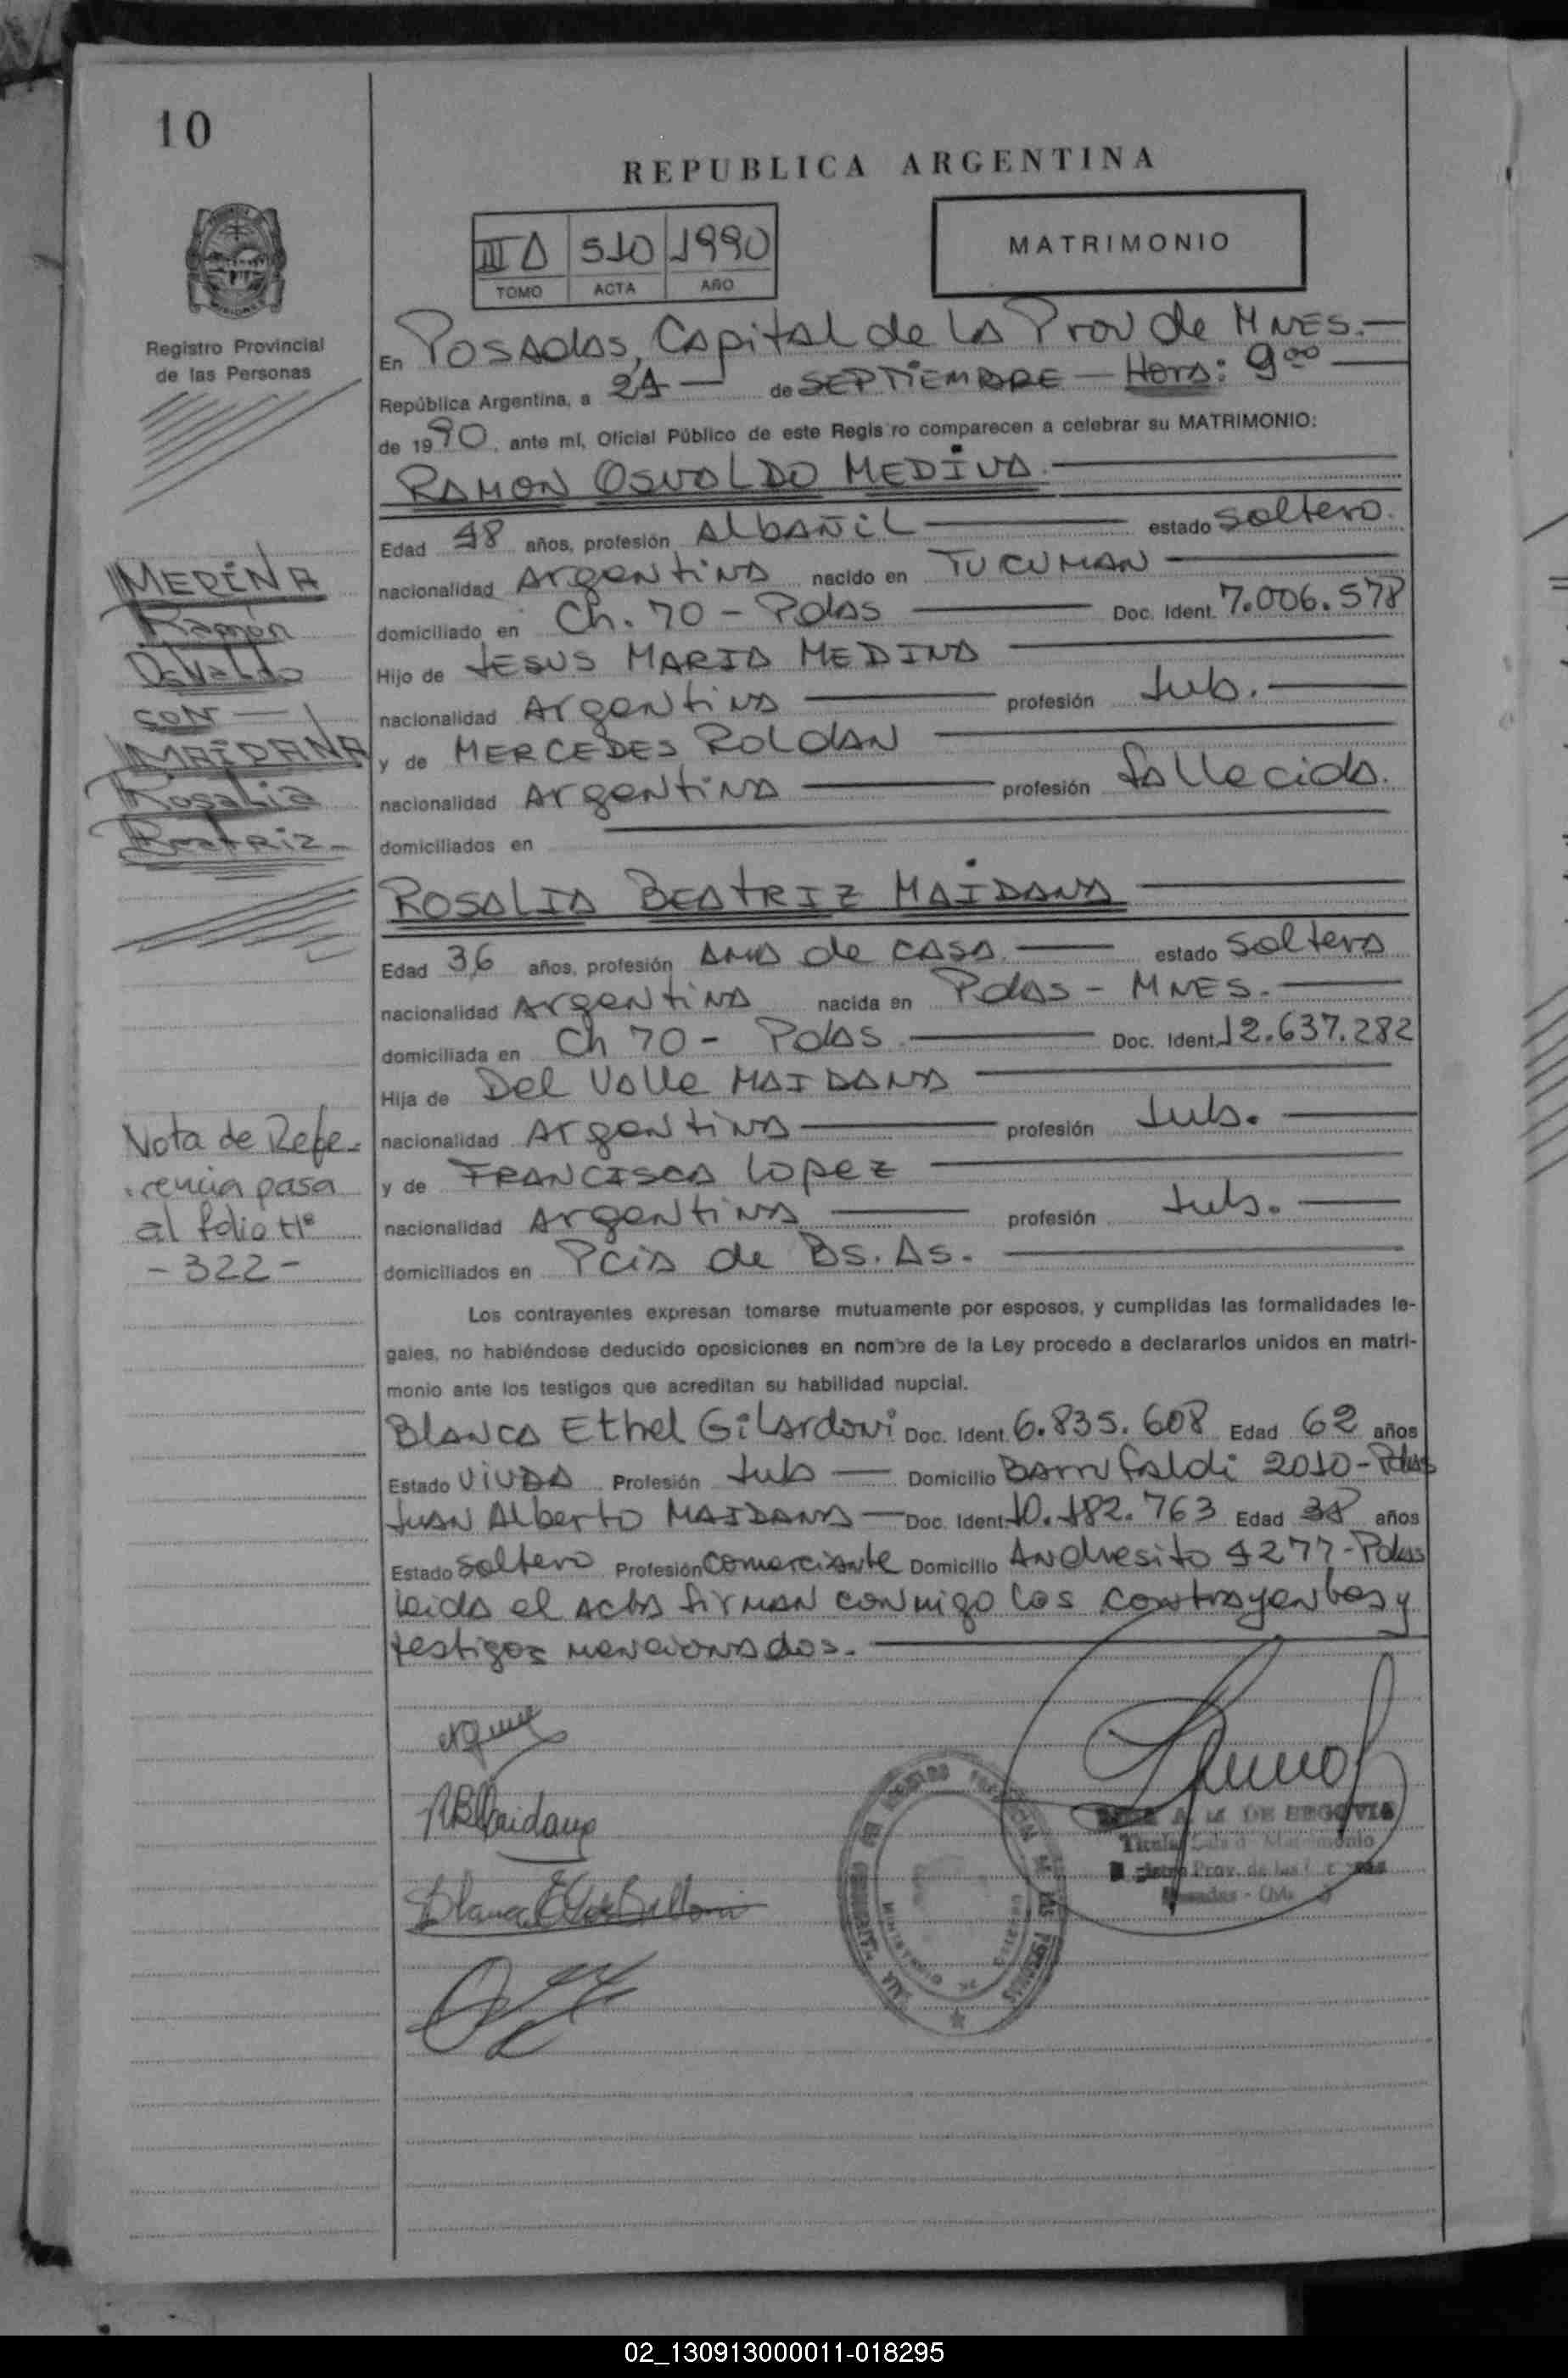 10
REPUBLICA ARGENTINA
III A 510 1990
TOMO ACTA AÑO
MATRIMONIO
Registro Provincial
de las Personas
En Posadas, Capital de la Prov de Mnes.—
República Argentina, a 24 — de SEPTIEMBRE — Hora: 9⁰⁰
de 1990, ante mí, Oficial Público de este Registro comparecen a celebrar su MATRIMONIO:
RAMON OSVALDO MEDINA.
Edad 48 años, profesión Albañil estado soltero.
nacionalidad Argentina nacido en TUCUMAN
domiciliado en Ch. 70 - Pdas Doc. Ident. 7.006.578
Hijo de JESUS MARIA MEDINA
nacionalidad Argentina profesión Jub.
y de MERCEDES ROLDAN
nacionalidad Argentina profesión fallecida.
domiciliados en
MEDINA
Ramón
Osvaldo
CON —
MAIDANA
Rosalia
Beatriz.-
ROSALIA BEATRIZ MAIDANA
Edad 36 años, profesión AMA de CASA. estado soltera
nacionalidad Argentina nacida en Pdas - MNES.
domiciliada en Ch 70 - Pdas. Doc. Ident. 12.637.282
Hija de Del Valle MAIDANA
nacionalidad Argentina profesión Jub.
y de FRANCISCA Lopez
nacionalidad Argentina profesión Jub.
domiciliados en Pcia de Bs. As.
Nota de Refe-
rencia pasa
al folio Nº
- 322 -
Los contrayentes expresan tomarse mutuamente por esposos, y cumplidas las formalidades le-
gales, no habiéndose deducido oposiciones en nombre de la Ley procedo a declararlos unidos en matri-
monio ante los testigos que acreditan su habilidad nupcial.
Blanca Ethel Gilardoni Doc. Ident. 6.835.608 Edad 62 años
Estado VIUDA Profesión Jub — Domicilio Barrufaldi 2010 - Pdas
Juan Alberto MAIDANA — Doc. Ident. 10.182.763 Edad 38 años
Estado soltero Profesión comerciante Domicilio Andresito 4277 - Pdas
leida el acta firman conmigo los contrayentes y
testigos mencionados.
RBMaidana
A. M. DE SEGOVIA
Titular Sala de Matrimonio
Registro Prov. de las Personas
02_130913000011-018295